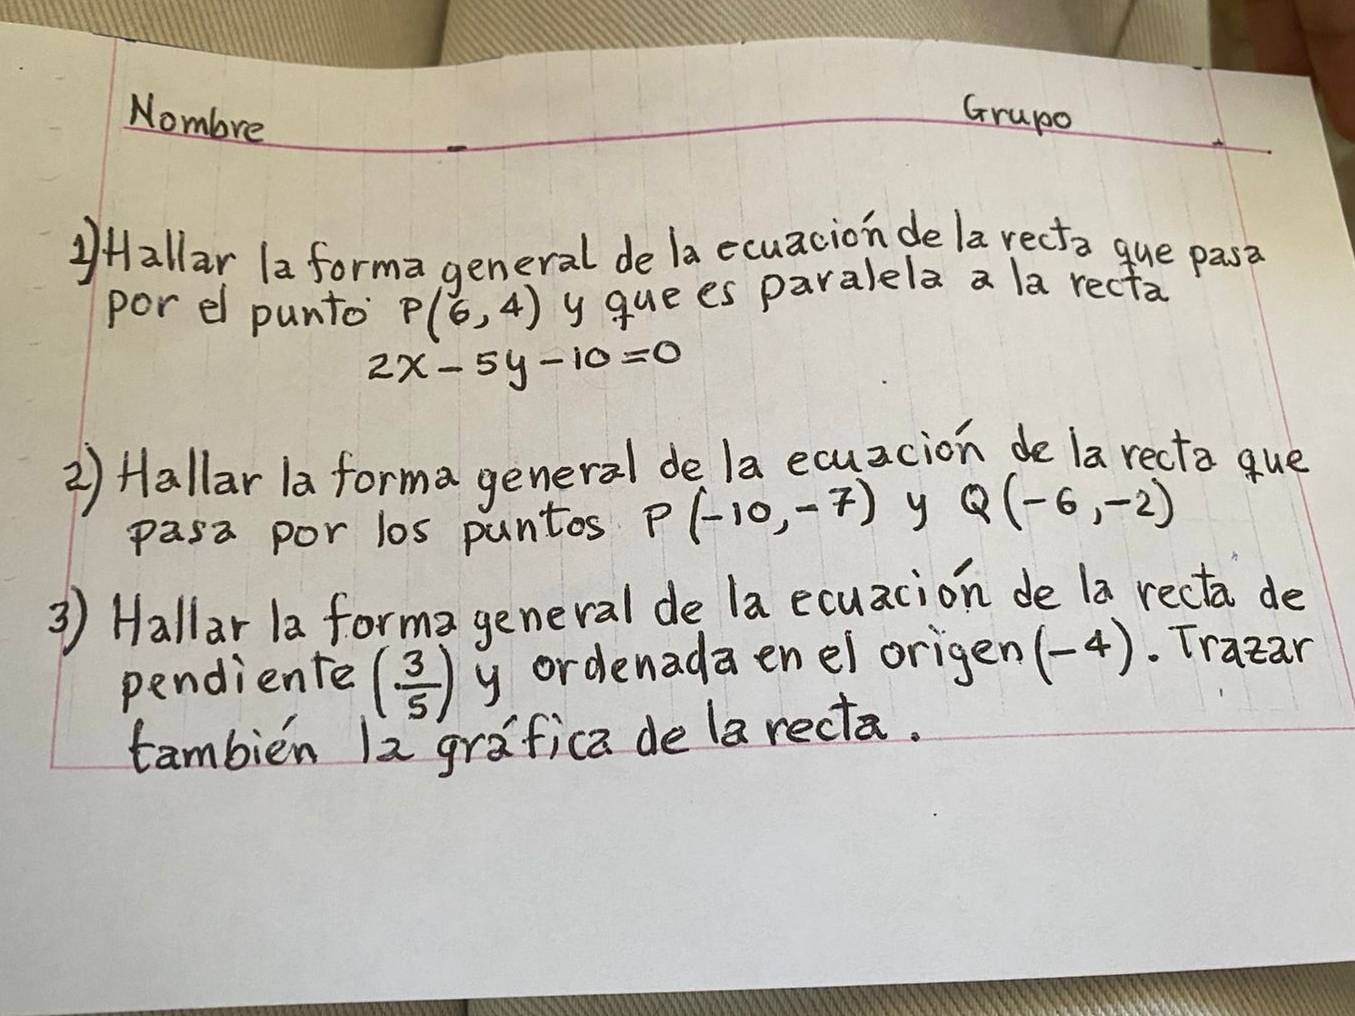 Nombre Grupo
1) Hallar la forma general de la ecuación de la recta que pasa
por el punto P(6,4) y que es paralela a la recta
2x-5y-10=0
2) Hallar la forma general de la ecuación de la recta que
pasa por los puntos P(-10,-7) y Q(-6,-2)
3) Hallar la forma general de la ecuación de la recta de
pendiente (3/5) y ordenada en el origen (-4). Trazar
también la gráfica de la recta.